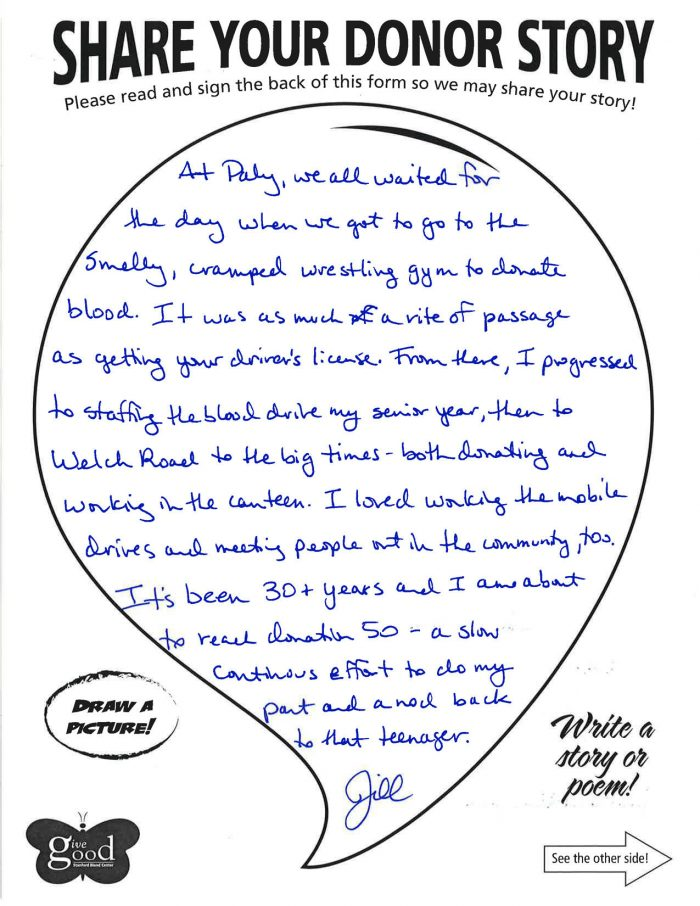 SHARE YOUR DONOR STORY
Please read and sign the back of this form so we may share your story!
At Paly, we all waited for
the day when we got to go to the
smelly, cramped wrestling gym to donate
blood. It was as much a rite of passage
as getting your driver's license. From there, I progressed
to staffing the blood drive my senior year, then to
Welch Road to the big times - both donating and
working in the canteen. I loved working the mobile
drives and meeting people out in the community, too.
It's been 30+ years and I am about
to reach donation 50 - a slow
continous effort to do my
part and a nod back
to that teenager.
Jill
DRAW A
PICTURE!
Write a
story or
poem!
give
good
Stanford Blood Center
See the other side!